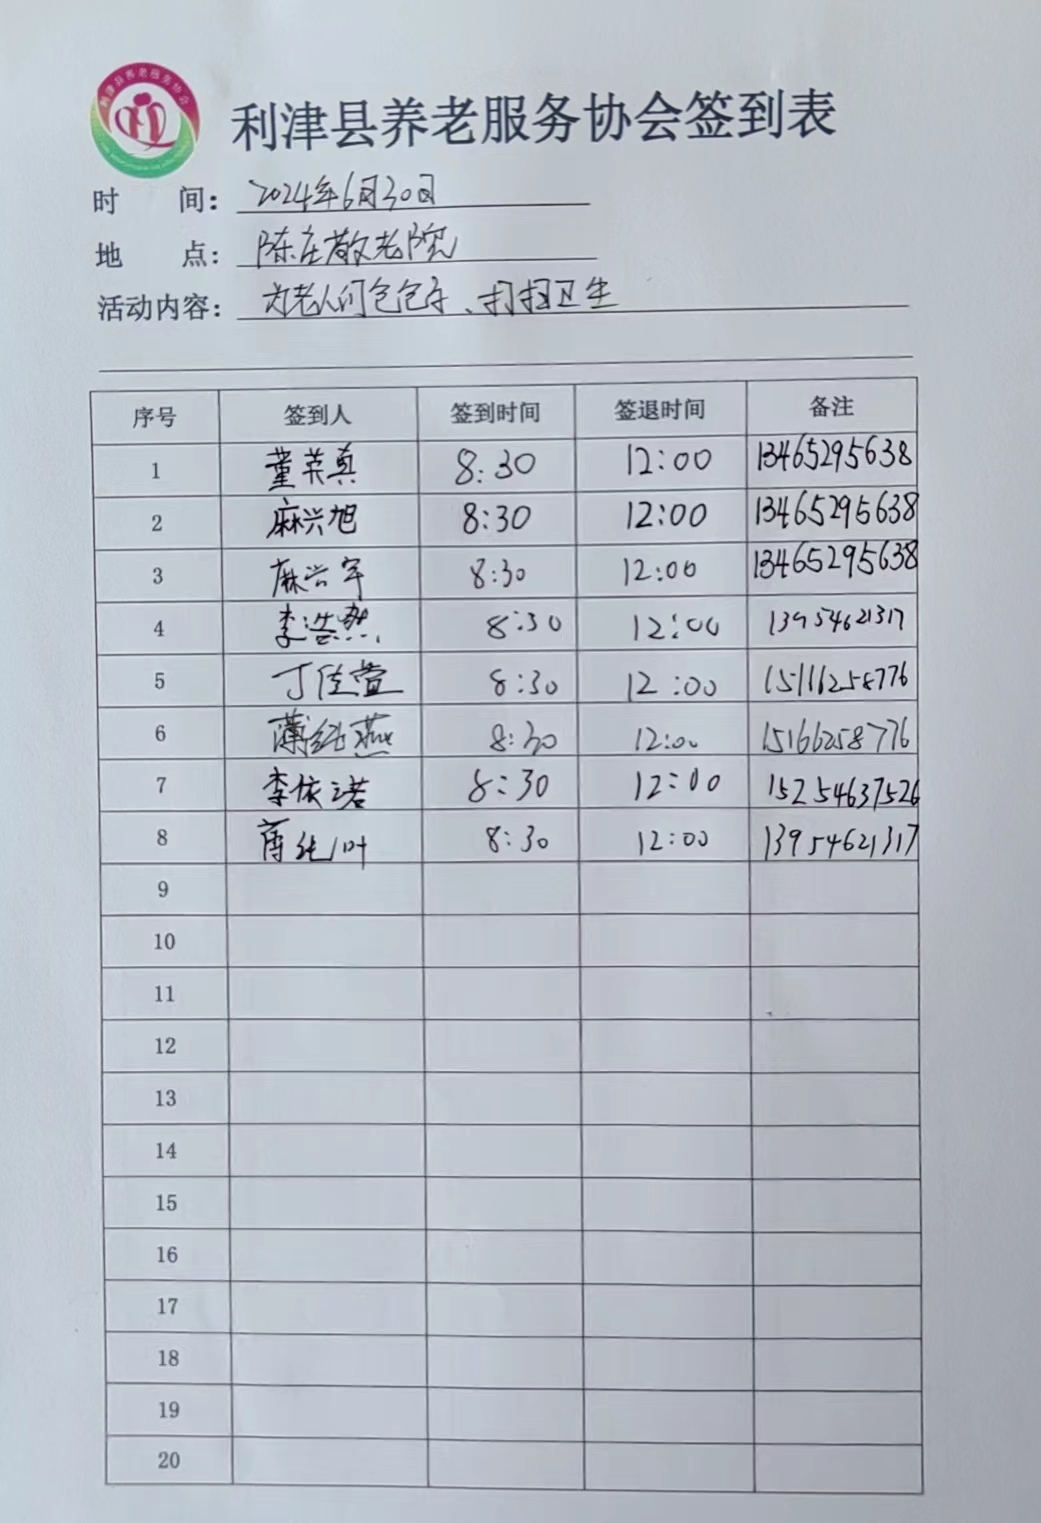 利津县养老服务协会
利津县养老服务协会签到表
时 间：2024年6月30日
地 点：陈庄敬老院
活动内容：为老人们包包子、打扫卫生
序号 签到人 签到时间 签退时间 备注
1 董荣真 8:30 12:00 13465295638
2 麻兴旭 8:30 12:00 13465295638
3 麻兴军 8:30 12:00 13465295638
4 李浩然 8:30 12:00 13954621317
5 丁佳萱 8:30 12:00 15116258776
6 薄纯燕 8:30 12:00 15166258776
7 李依诺 8:30 12:00 15254637526
8 薄纯叶 8:30 12:00 13954621317
9
10
11
12
13
14
15
16
17
18
19
20